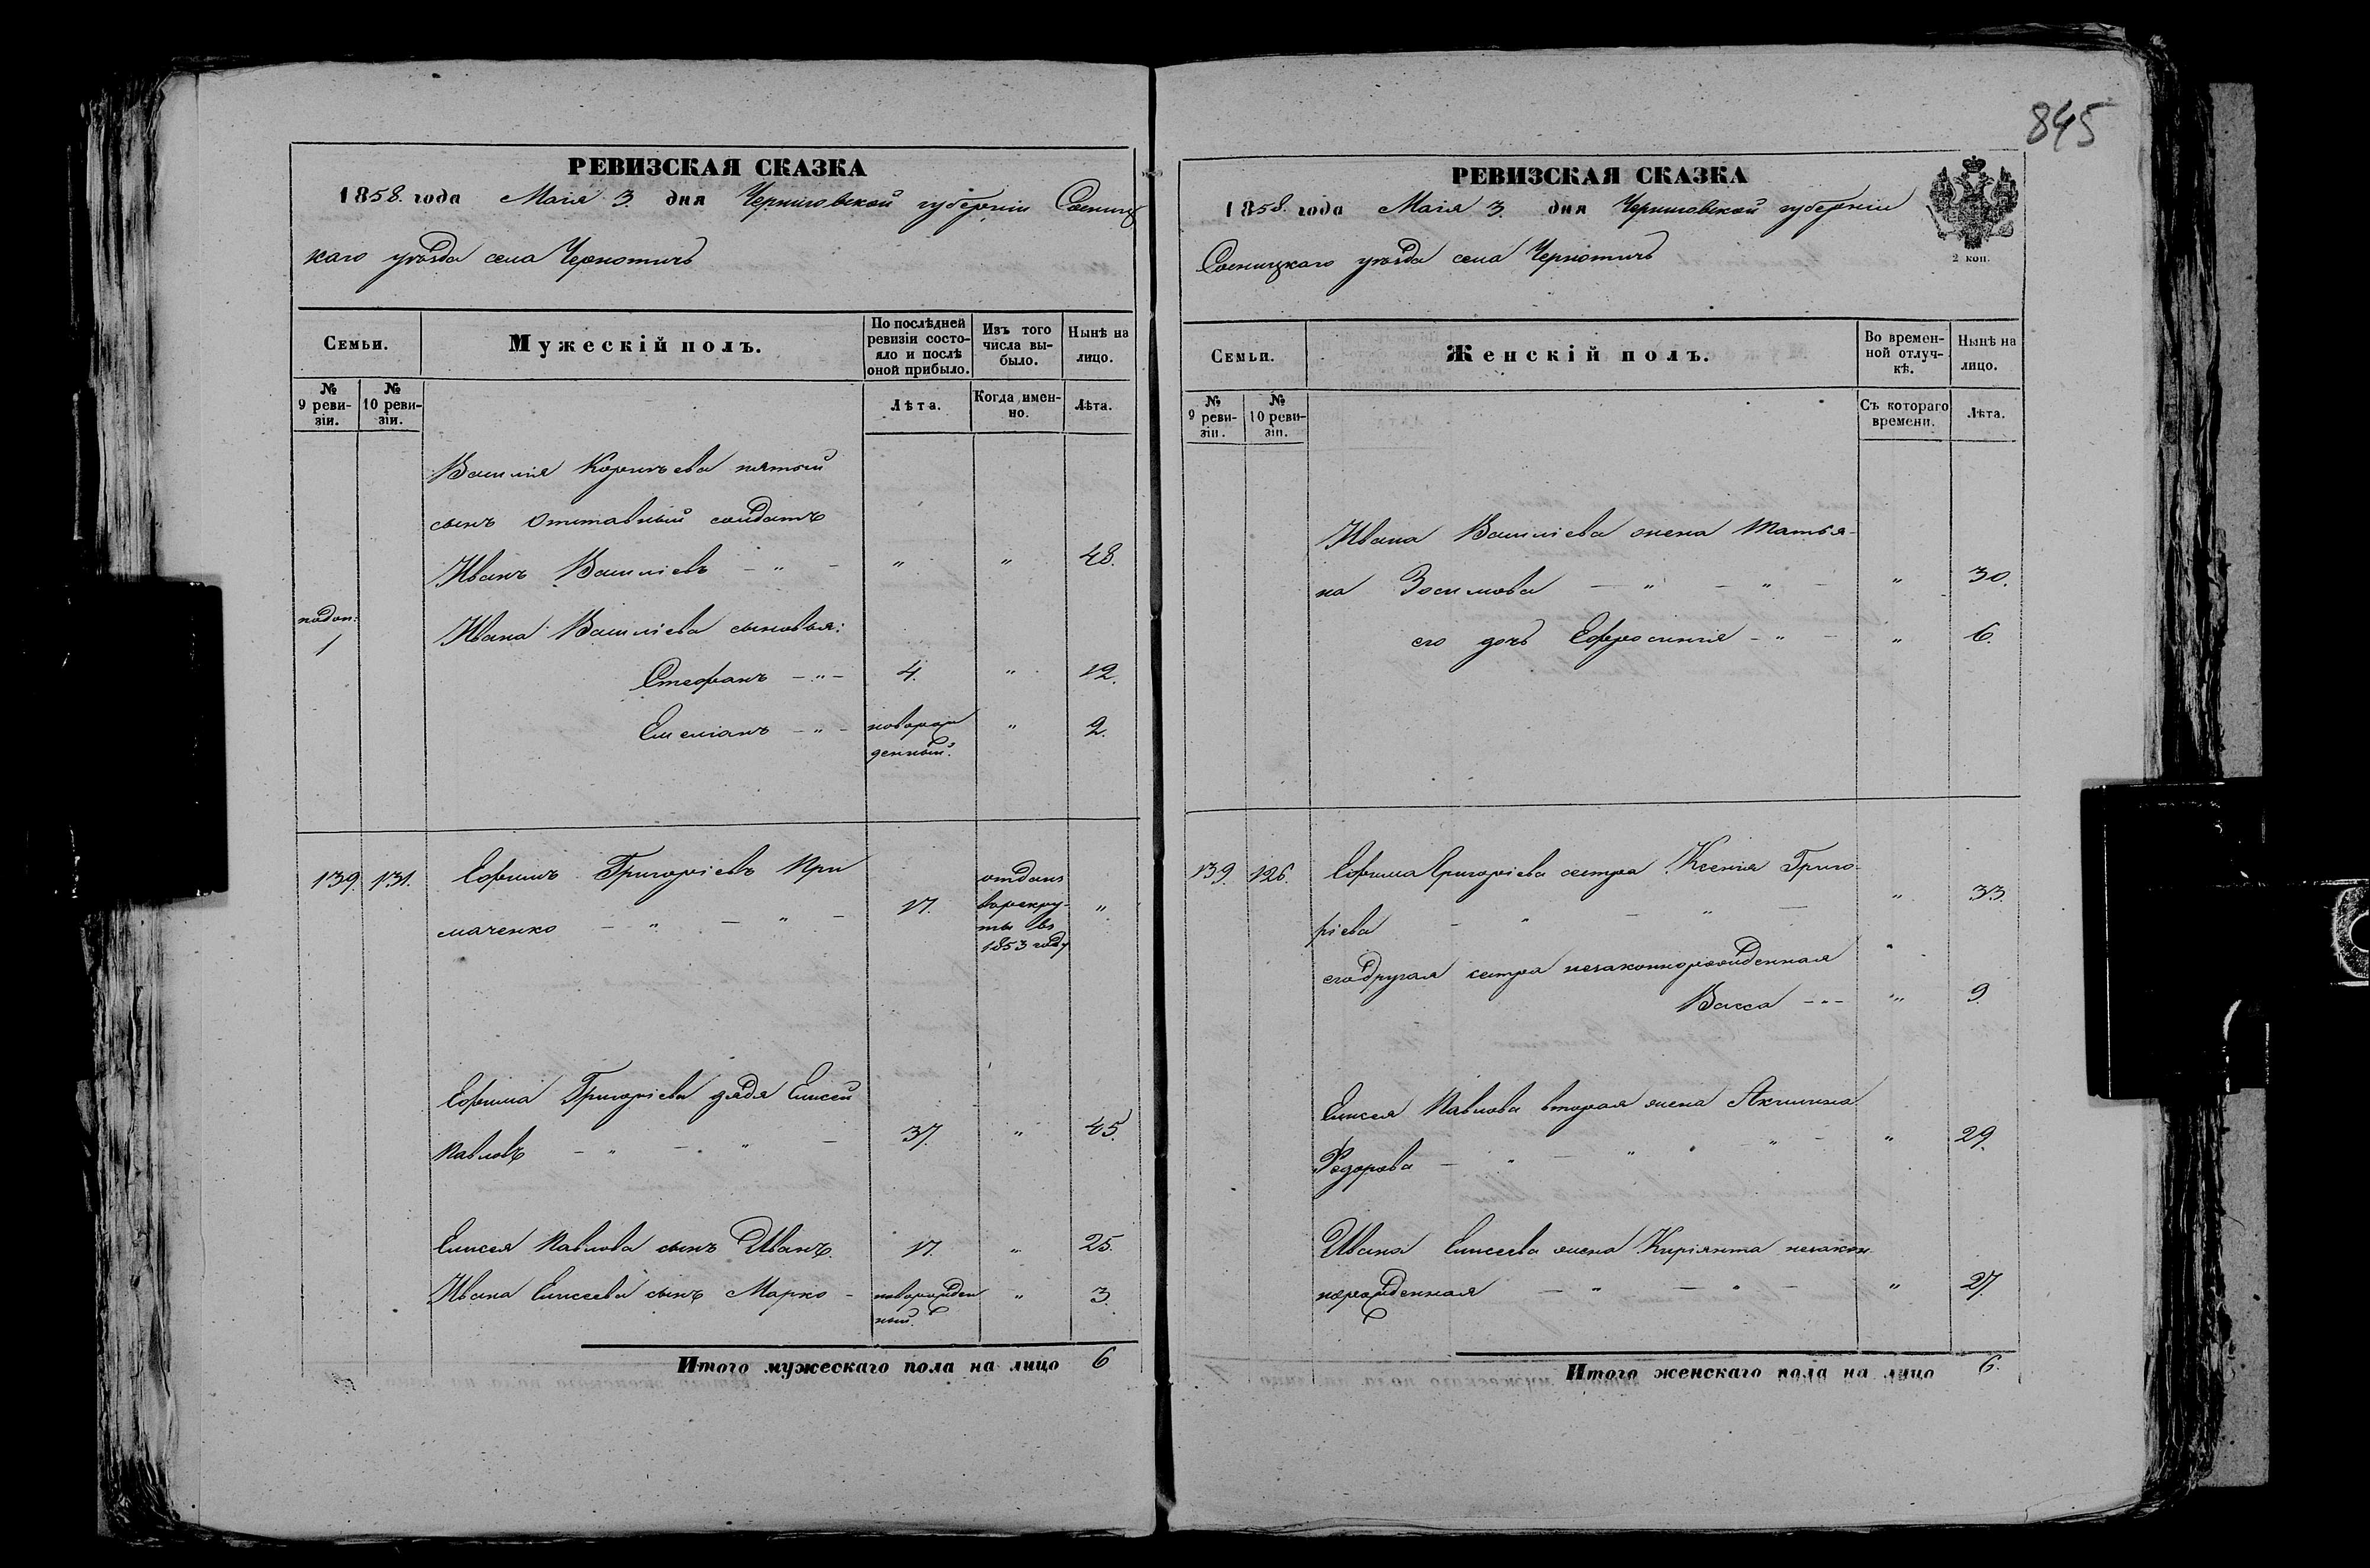 845
РЕВИЗСКАЯ СКАЗКА
1858. года Маія 3. дня Черниговской губерніи Сосниц
каго уѣзда села Чернотичъ
Семьи.
Мужескій полъ.
По послѣдней ревизіи состояло и послѣ оной прибыло.
Изъ того числа выбыло.
Нынѣ на лицо.
№ 9 ревизіи.
№ 10 ревизіи.
Лѣта.
Когда именно.
Лѣта.
Василія Корнѣева пятый
сынъ отставный солдатъ
Иванъ Василіевъ - " - " " 48.
Ивана Василіева сыновья:
1
Стефанъ - " - 4. " 12.
Емеліанъ - " - новорож
денный. " 2.
139. 131. Ефимъ Григоріевъ При
маченко - " - " - 17. отданъ
в рекру-
ты въ
1853 году "
Ефима Григоріева дядя Елисей
Павловъ - " - " - 37. " 45.
Елисея Павлова сынъ Иванъ. 17. " 25.
Ивана Елисеева сынъ Марко - новорожден
ный. " 3.
Итого мужескаго пола на лицо 6
РЕВИЗСКАЯ СКАЗКА
1858. года Маія 3. дня Черниговской губерніи
Сосницкаго уѣзда села Чернотичъ
2 коп.
Семьи.
Женскій полъ.
Во временной отлучкѣ.
Нынѣ на лицо.
№ 9 ревизіи.
№ 10 ревизіи.
Съ котораго времени.
Лѣта.
Ивана Василіева жена Татья-
на Зосимова - " - " - " 30.
его дочь Ефросинія - " - " 6.
139. 126. Ефима Григоріева сестра Ксенія Григо-
ріева - " - " - " 33.
его другая сестра незаконнорожденная
Васса - " - " 9.
Елисея Павлова вторая жена Акилина
Федорова - " - " - " - " 29.
Ивана Елисеева жена незакон
норожденная - " - " - " 27.
Итого женскаго пола на лицо 6.